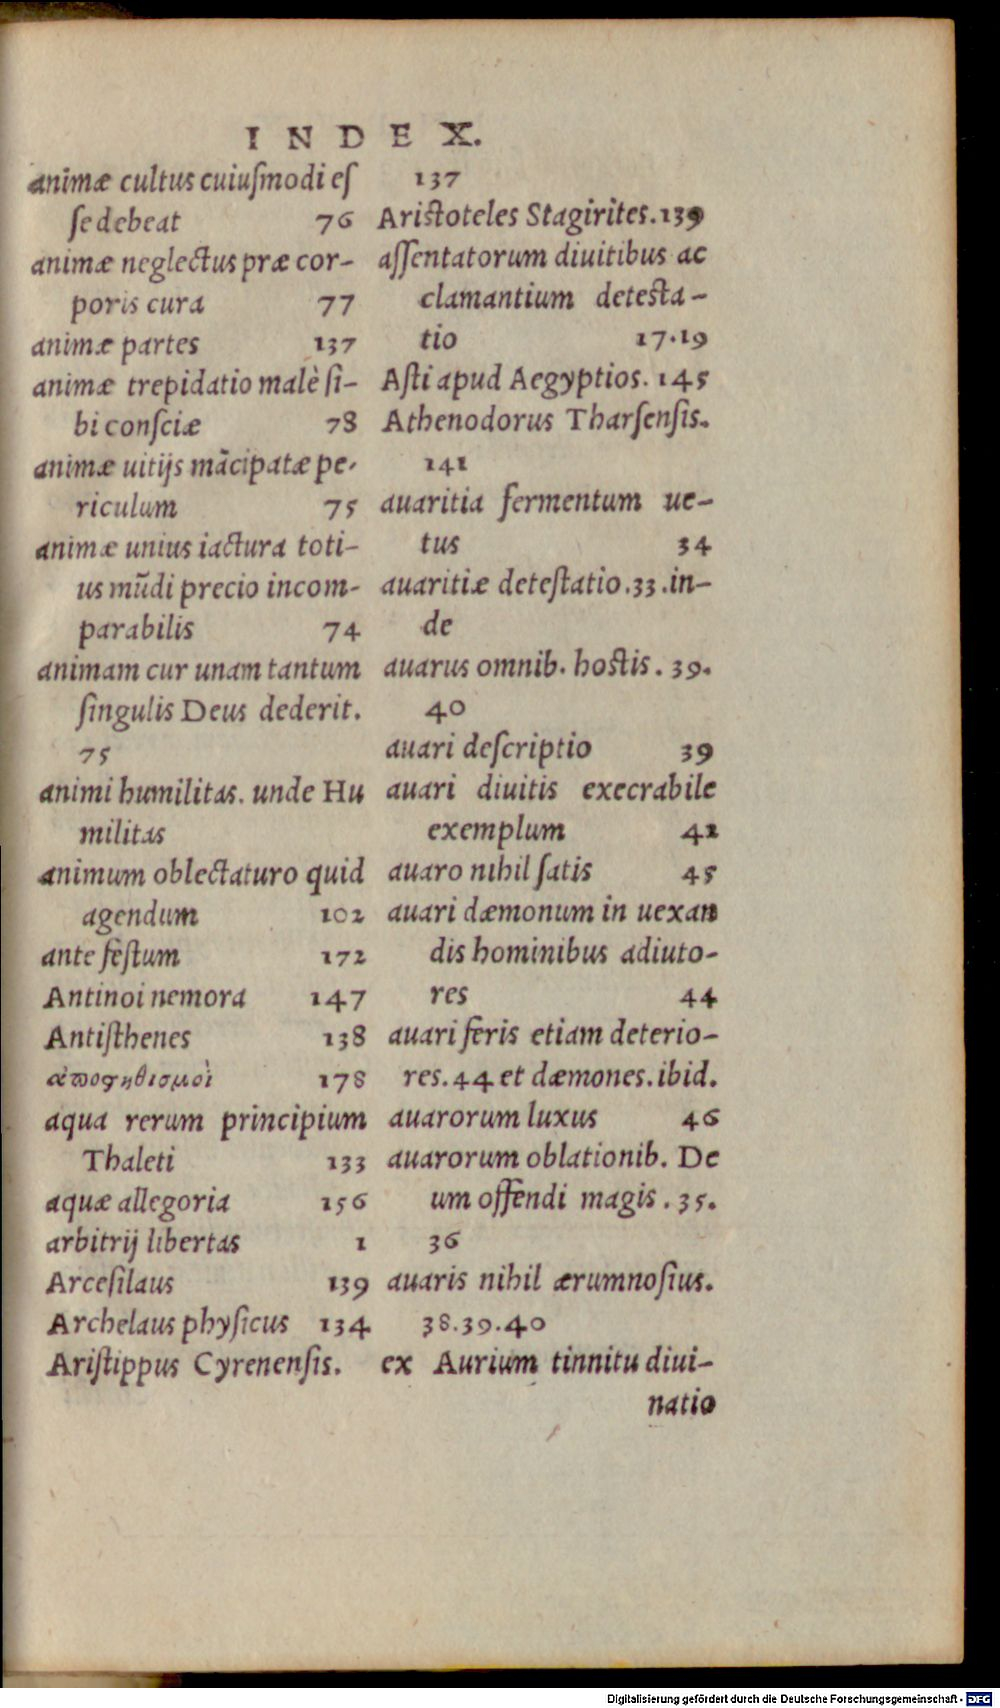 INDEX.
animæ cultus cuiuſmodi eſ
ſe debeat 76
animæ neglectus præ cor-
poris cura 77
animæ partes 137
animæ trepidatio malè ſi-
bi conſciæ 78
animæ uitijs mãcipatæ pe-
riculum 75
animæ unius iactura toti-
us mũdi precio incom-
parabilis 74
animam cur unam tantum
ſingulis Deus dederit.
75
animi humilitas. unde Hu
militas
animum oblectaturo quid
agendum 102
ante feſtum 172
Antinoi nemora 147
Antiſthenes 138
178
aqua rerum principium
Thaleti 133
aquæ allegoria 156
arbitrij libertas 1
Arceſilaus 139
Archelaus phyſicus 134
Ariſtippus Cyrenenſis.
137
Ariſtoteles Stagirites. 139
aſſentatorum diuitibus ac
clamantium detesta-
tio 17.19
Aſti apud Aegyptios. 145
Athenodorus Tharſenſis.
141
auaritia fermentum ue-
tus 34
auaritiæ deteſtatio. 33. in-
de
auarus omnib. hostis. 39.
40
auari deſcriptio 39
auari diuitis execrabile
exemplum 42
auaro nihil ſatis 45
auari dæmonum in uexan
dis hominibus adiuto-
res 44
auari feris etiam deterio-
res. 44 et dæmones. ibid.
auarorum luxus 46
auarorum oblationib. De
um offendi magis. 35.
36
auaris nihil ærumnoſius.
38.39.40
ex Aurium tinnitu diui-
natio
Digitalisierung gefördert durch die Deutsche Forschungsgemeinschaft - DFG